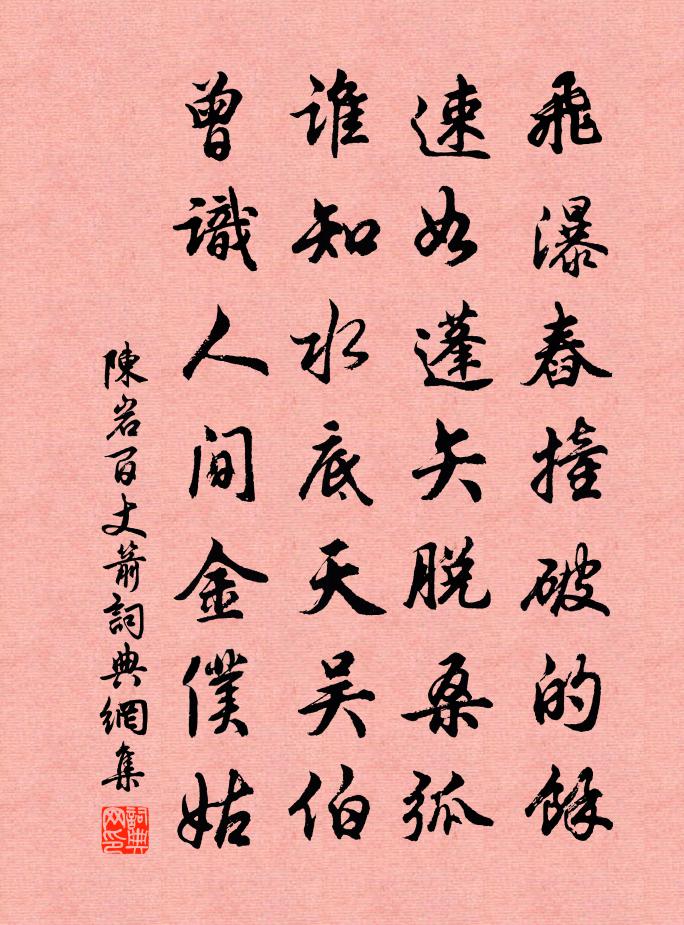 飛瀑舂撞破的餘
速如蓬矢脫桑弧
誰知水底天吴伯
曾識人間金僕姑
陳岩百丈箭詞典網集
詞典网印